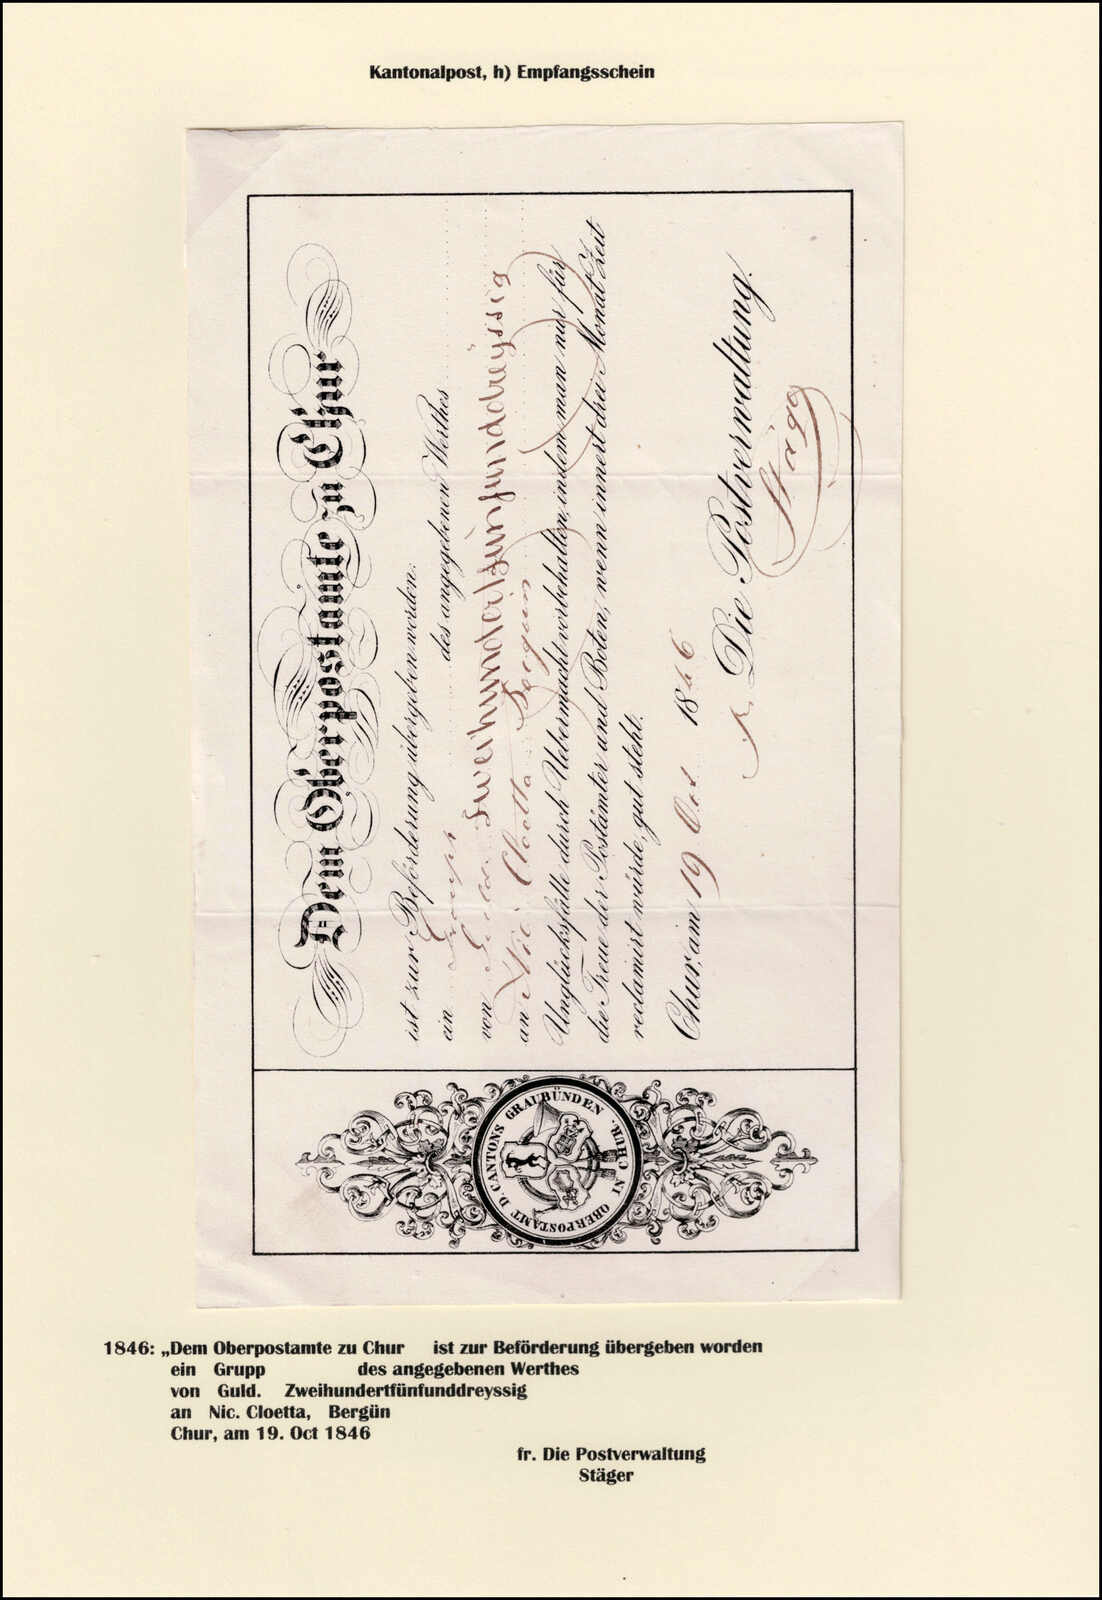 Kantonalpost, h) Empfangsschein
Dem Oberpostamte zu Chur
ist zur Beförderung übergeben worden:
ein Grupp des angegebenen Werthes
von Guld. Zweihundertfünfunddreyssig
an Nic. Cloetta Bergün
Unglücksfälle durch Uebermacht vorbehalten, indem man nur für
die Treue der Postämter und Boten, wenn innert drei Monat Zeit
reclamirt würde, gut steht.
Chur, am 19 Oct 1846
fr. Die Postverwaltung.
Stäger
OBERPOSTAMT D. CANTONS GRAUBÜNDEN. IN CHUR.
1846: „Dem Oberpostamte zu Chur ist zur Beförderung übergeben worden
ein Grupp des angegebenen Werthes
von Guld. Zweihundertfünfunddreyssig
an Nic. Cloetta, Bergün
Chur, am 19. Oct 1846
fr. Die Postverwaltung
Stäger